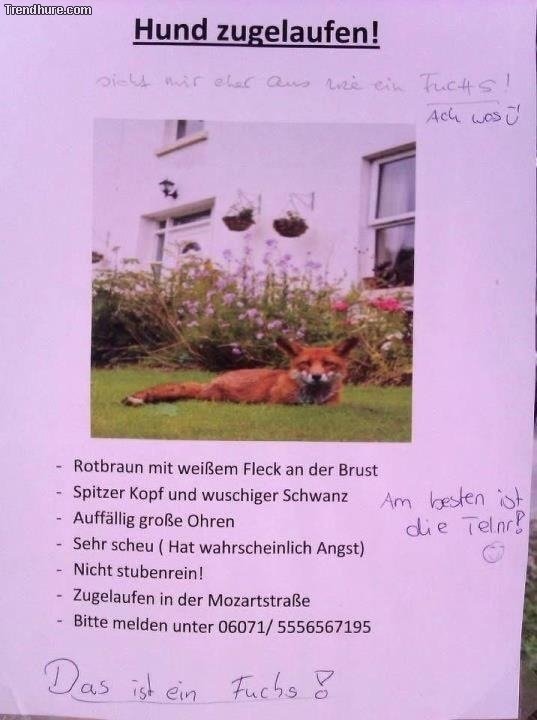 Trendhure.com
Hund zugelaufen!
sieht mir eher aus wie ein Fuchs!
Ach was
- Rotbraun mit weißem Fleck an der Brust
- Spitzer Kopf und wuschiger Schwanz
- Auffällig große Ohren
- Sehr scheu ( Hat wahrscheinlich Angst)
- Nicht stubenrein!
- Zugelaufen in der Mozartstraße
- Bitte melden unter 06071/ 5556567195
Am besten ist
die Telnr!
Das ist ein Fuchs!